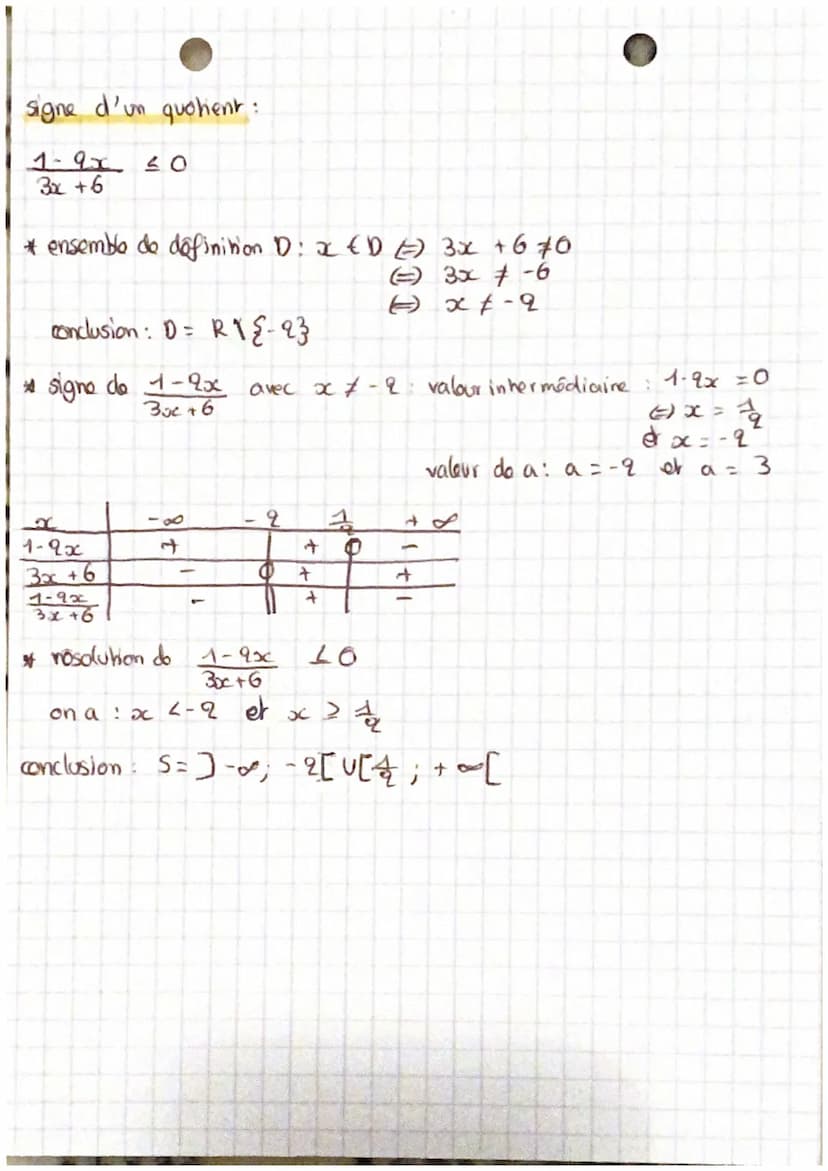 signe d'un quotient :
1-2x / 3x+6 ≤ 0
* ensemble de définition D : x ∈ D ⇔ 3x +6 ≠0
⇔ 3x ≠ -6
⇔ x ≠ -2
conclusion : D = R \ {-2}
* signe de 1-2x / 3x+6 avec x ≠ -2 : valeur intermédiaire : 1-2x =0
⇔ x = 1/2
et x = -2
valeur de a : a = -2 et a = 3
x -∞ -2 1/2 +∞
1-2x + + 0 -
3x +6 - 0 + +
1-2x / 3x+6 - || + -
* résolution de 1-2x / 3x+6 ≤ 0
on a : x < -2 et x ≥ 1/2
conclusion : S = ]-∞; -2[ U [1/2 ; +∞[